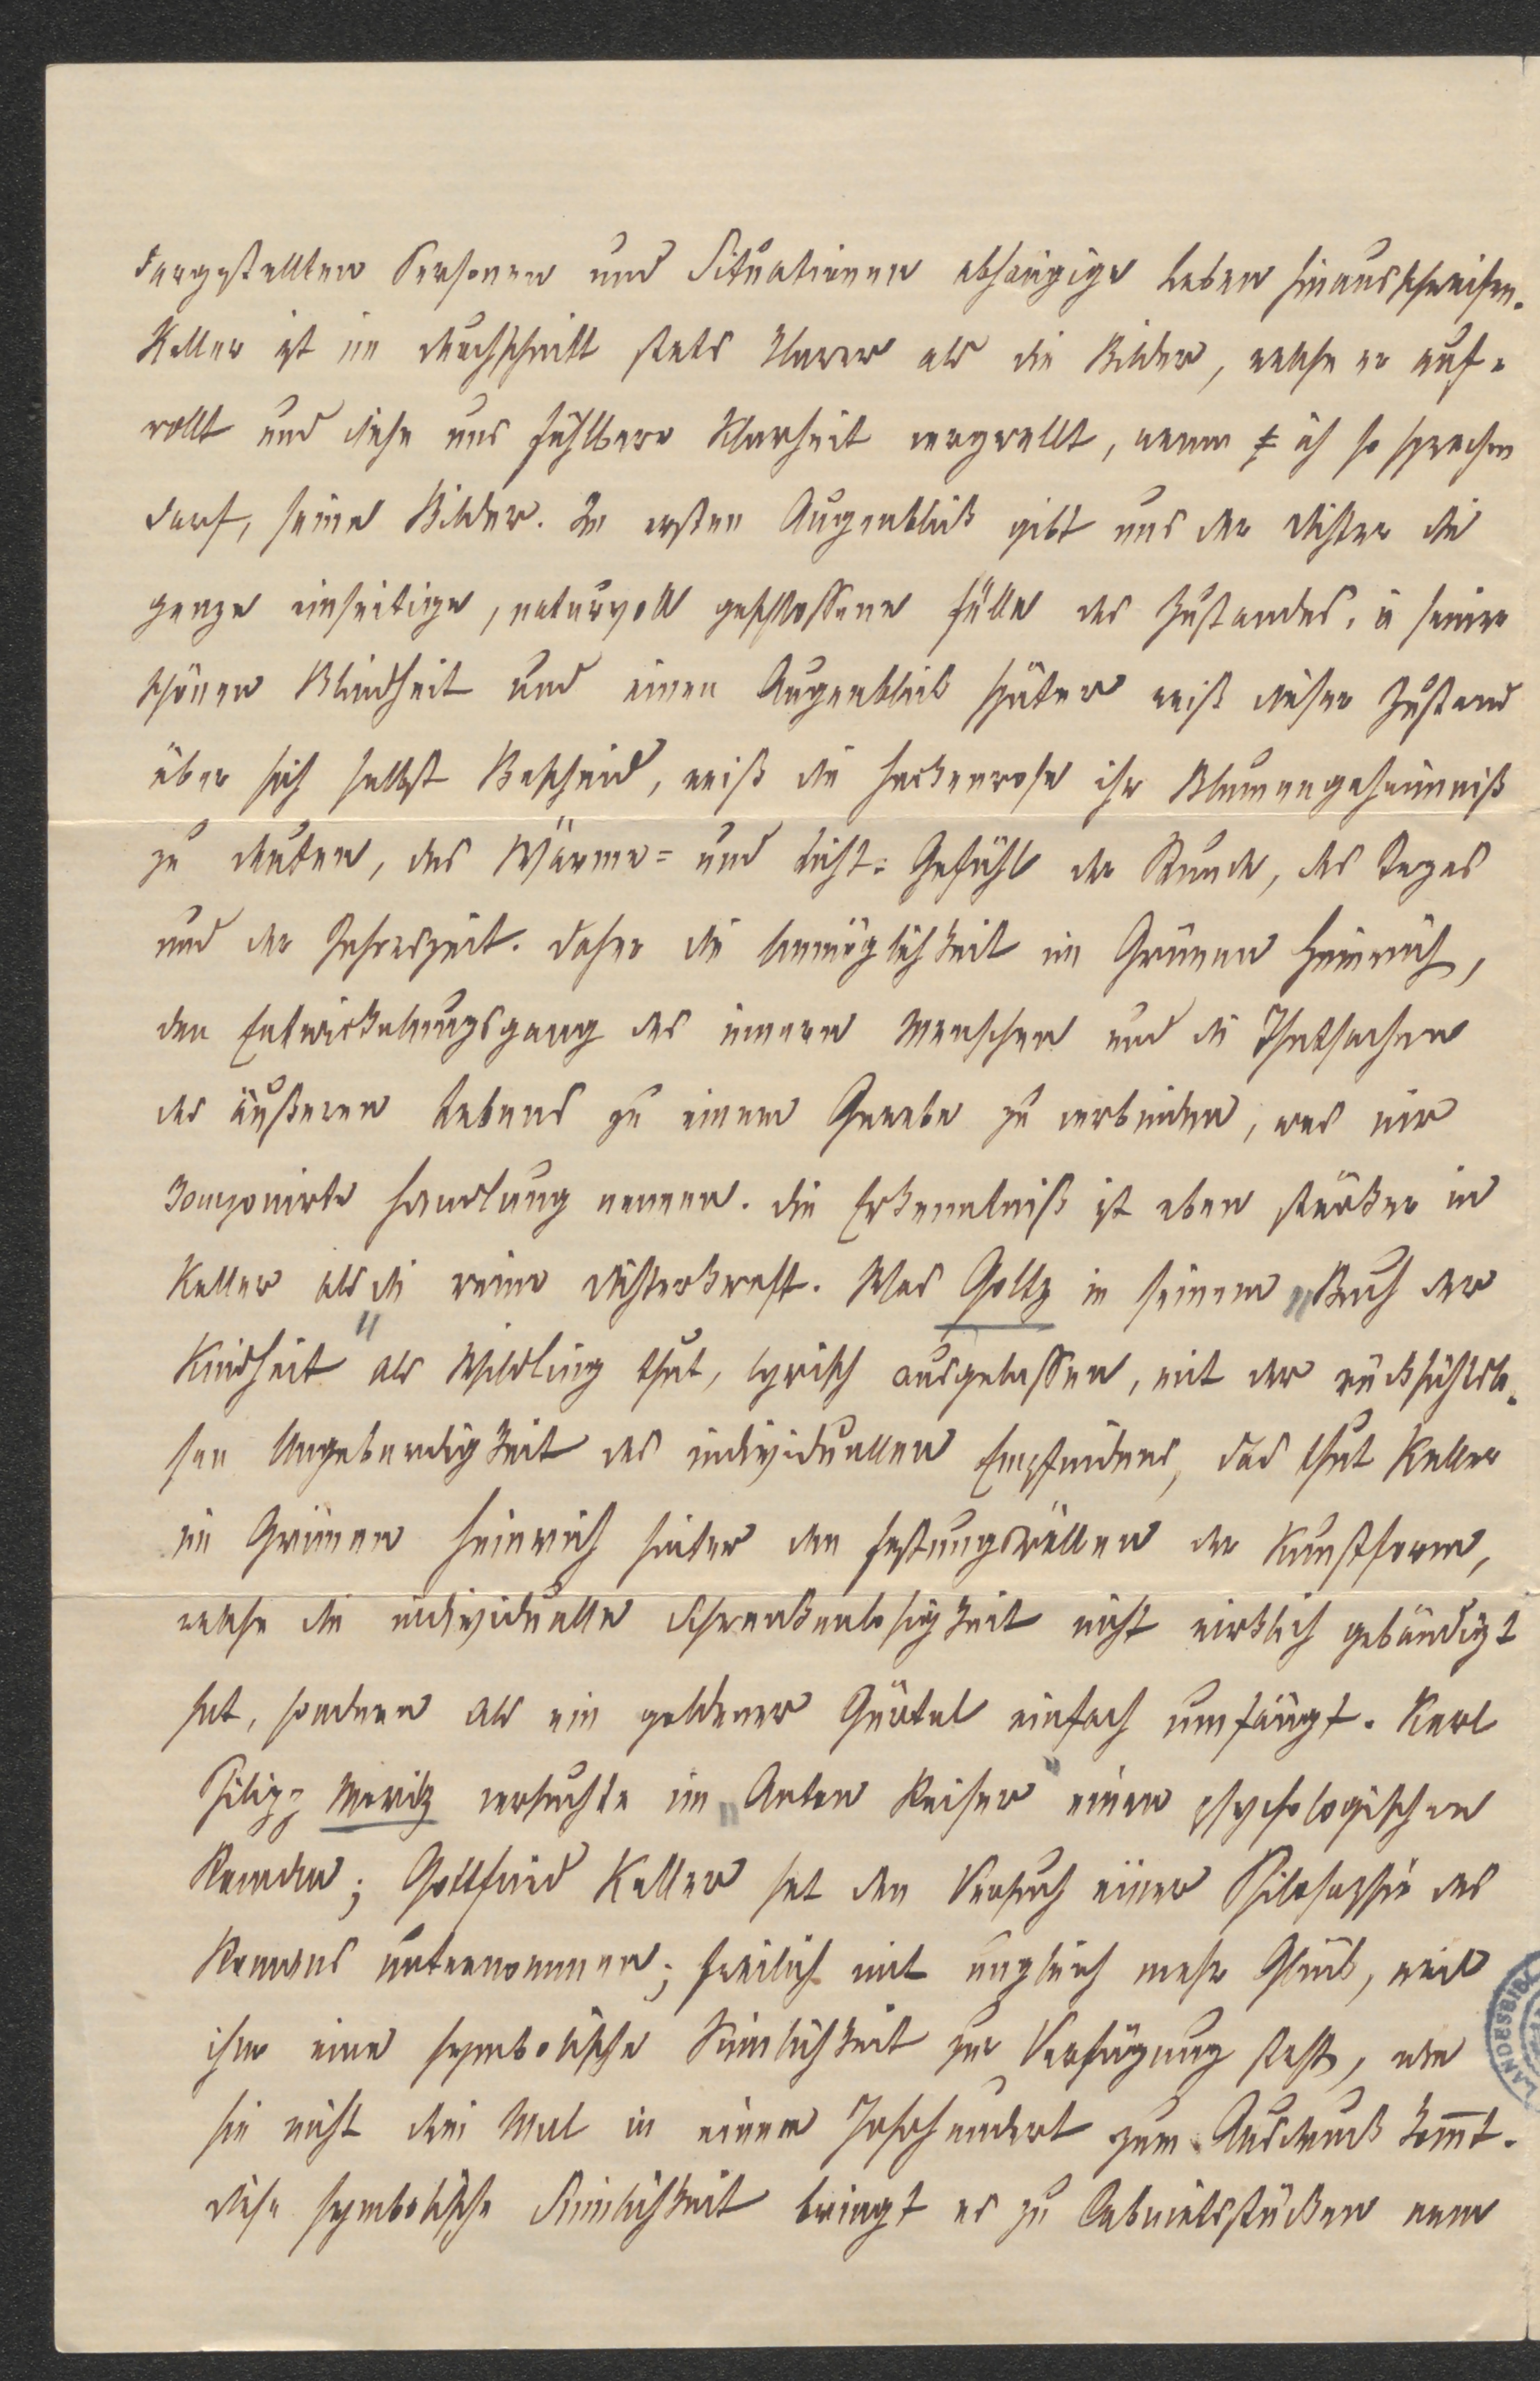 dargestellten Personen und Situationen abhängige Leben hinausschweifen.
Keller ist im Durchschnitt stets klarer als die Bilder, welche er auf-
rollt und diese uns fühlbare Klarheit vergrellt, wenn ich so sprechen
darf, seine Bilder. Im ersten Augenblick gibt uns der Dichter die
ganze einseitige, naturvoll geschlossene Fülle des Zustandes, in seiner
schönen Blindheit und einen Augenblick später weiß dieser Zustand
über sich selbst Bescheid, weiß die Heckenrose ihr Blumengeheimniß
zu deuten, das Wärme= und Licht=Gefühl der Stunde, des Tages
und der Jahreszeit. Daher die Unmöglichkeit im Grünen Heinrich,
den Entwickelungsgang des innern Menschen und die Thatsachen
des äußeren Lebens zu einem Gewebe zu verbinden, was wir
komponirte Handlung nennen. Die Erkenntniß ist eben stärker in
Keller als die reine Dichterkraft. Was Goltz in seinem „Buch der
Kindheit" als Wildling thut, lyrisch ausgelassen, mit der rücksichtslo-
sen Ungeberdigkeit des individuellen Empfindens, das thut Keller
im Grünen Heinrich hinter den Festungswällen der Kunstform,
welche die individuelle Schrankenlosigkeit nicht wirklich gebändigt
hat, sondern als ein goldener Gürtel einfach umfängt. Karl
Philipp Moritz versuchte im „Anton Reiser" einen psychologischen
Roman; Gottfried Keller hat den Versuch einer Philosophie des
Romans unternommen; freilich mit ungleich mehr Glück, weil
ihm eine symbolische Sinnlichkeit zur Verfügung steht, wie
sie nicht drei Mal in einem Jahrhundert zum Ausdruck kommt.
Diese symbolische Sinnlichkeit bringt es zu Cabinetsstücken vom
LANDESBIBL